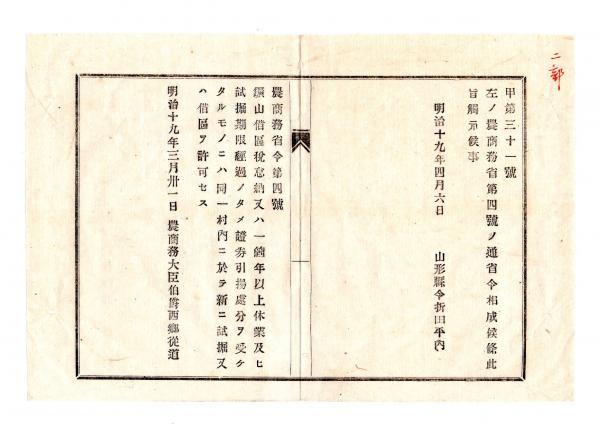 二部
甲第三十一號
左ノ農商務省第四號ノ通省令相成候條此
旨觸示候事
明治十九年四月六日
山形縣令折田平內
農商務省令第四號
鑛山借區稅怠納又ハ一箇年以上休業及ヒ
試掘期限經過ノタメ證券引揚處分ヲ受ケ
タルモノニハ同一村內ニ於テ新ニ試掘又
ハ借區ヲ許可セス
明治十九年三月卅一日
農商務大臣伯爵西鄕從道